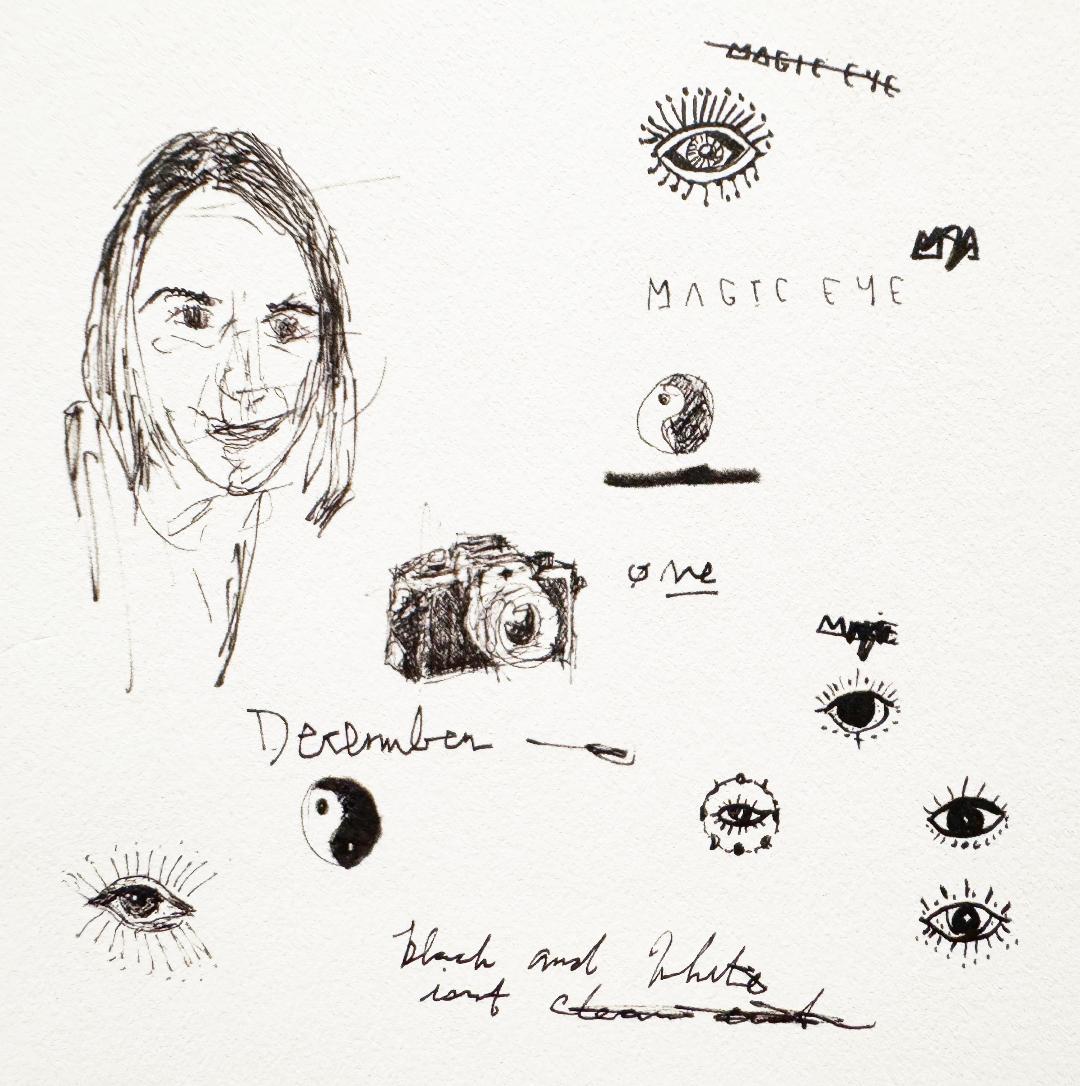 MAGIC EYE
MAGIC EYE
one
MAGIC
December
black and White
isnt